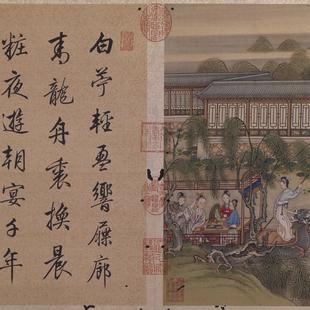 白苧輕盈響屧廊
青龍舟裏換晨
粧夜遊朝宴千年